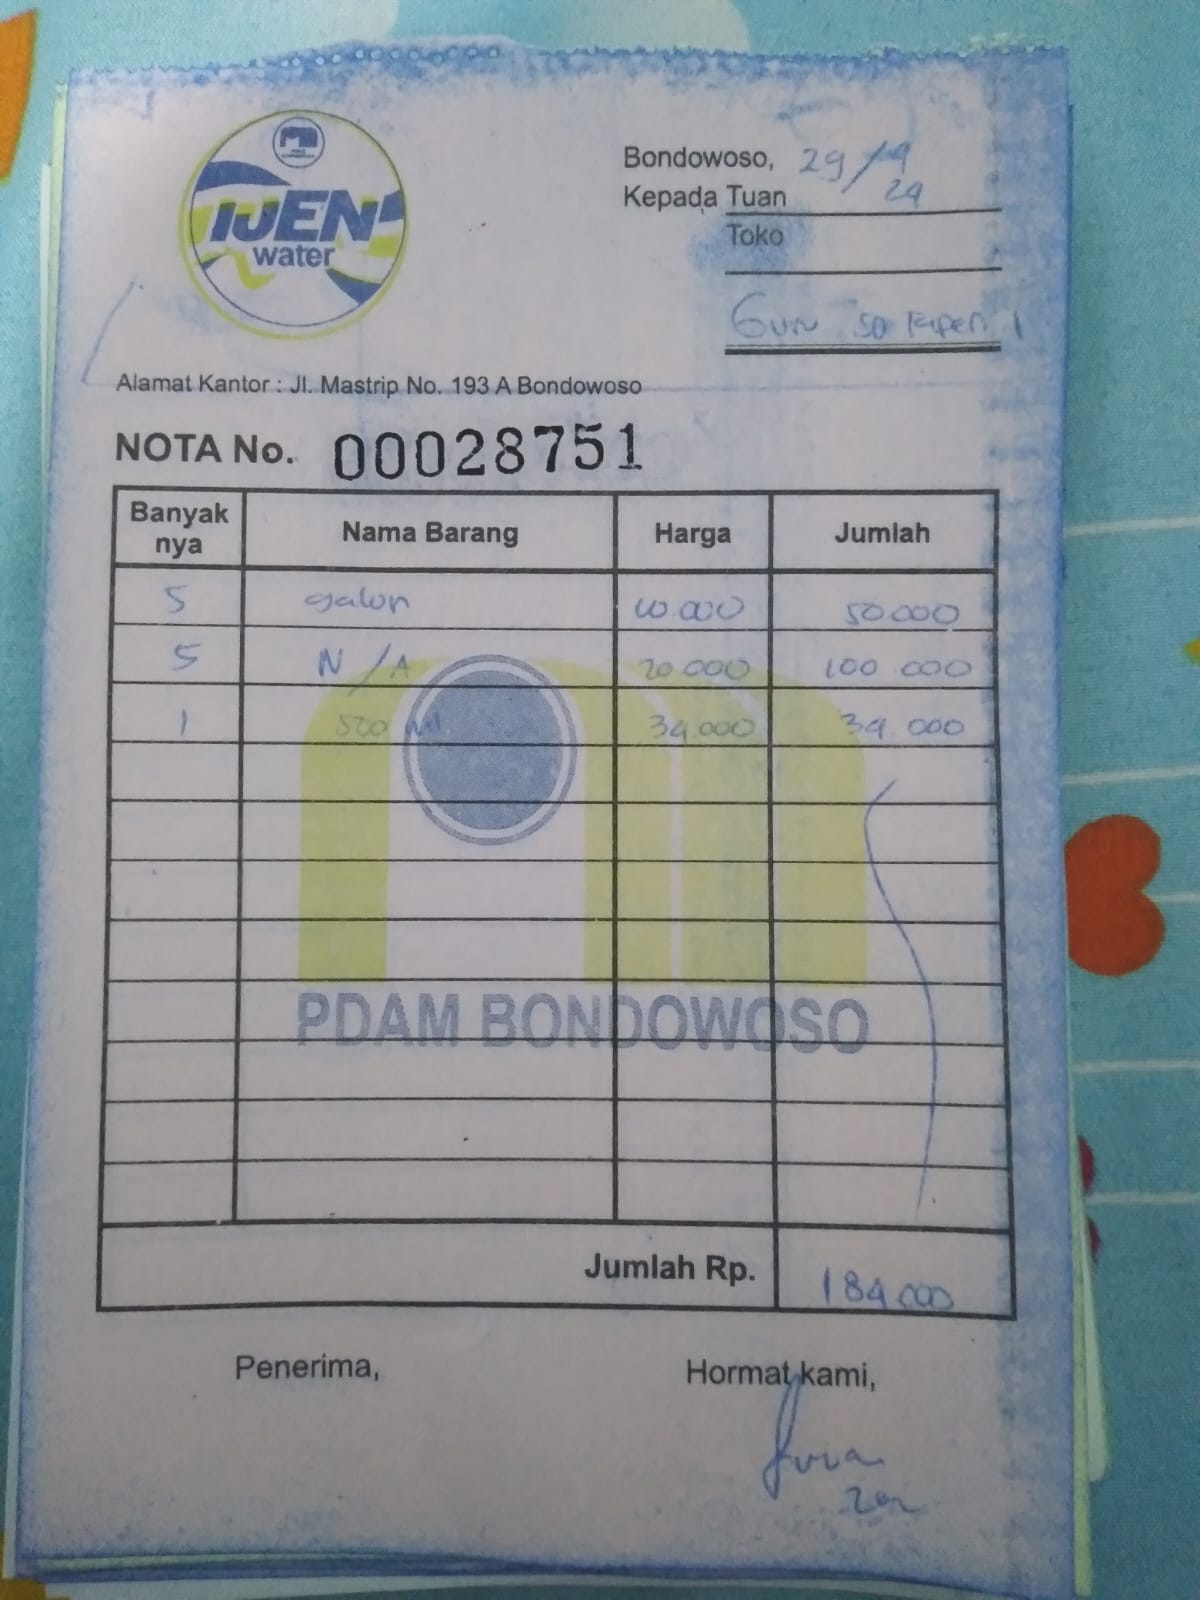 IJEN
water
Bondowoso, 29/4
24
Kepada Tuan
Toko
Guru SD Tapen 1
Alamat Kantor : Jl. Mastrip No. 193 A Bondowoso
NOTA No. 00028751
Banyak nya Nama Barang Harga Jumlah
5 galon 10.000 50.000
5 N/A 20.000 100 000
1 500 ml 34.000 34.000
PDAM BONDOWOSO
Jumlah Rp. 184.000
Penerima, Hormat kami,